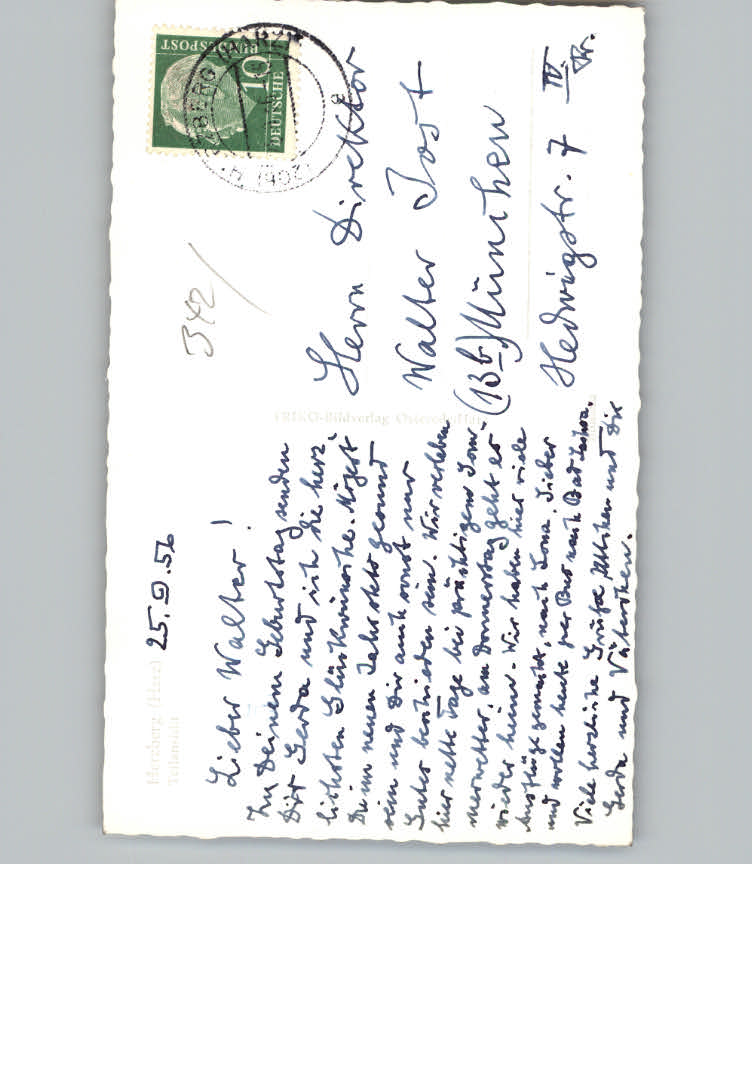 Herzberg (Harz)
Teilansicht
25. VI. 56
Lieber Walter!
Zu Deinem Geburtstag senden
Dir Gerda und ich die herz-
lichsten Glückwünsche. Mögest
Du im neuen Jahr stets gesund
sein und Dir auch sonst nur
Gutes beschieden sein. Wir verleben
hier nette Tage bei prächtigem Som-
merwetter, am Donnerstag geht es
wieder heim. Wir haben hier viele
Ausflüge gemacht, nach
und wollen heute per Bus nach Bad Sachsa.
Viele herzliche Grüße
Gerda und Väterchen.
TRIKO-Bildverlag Osterode/Harz
342/
DEUTSCHE
BUNDESPOST
10
HERZBERG (HARZ)
(20b)
e
Herrn Direktor
Walter Jost
(13b) München
Hedwigstr. 7 IV. Str.